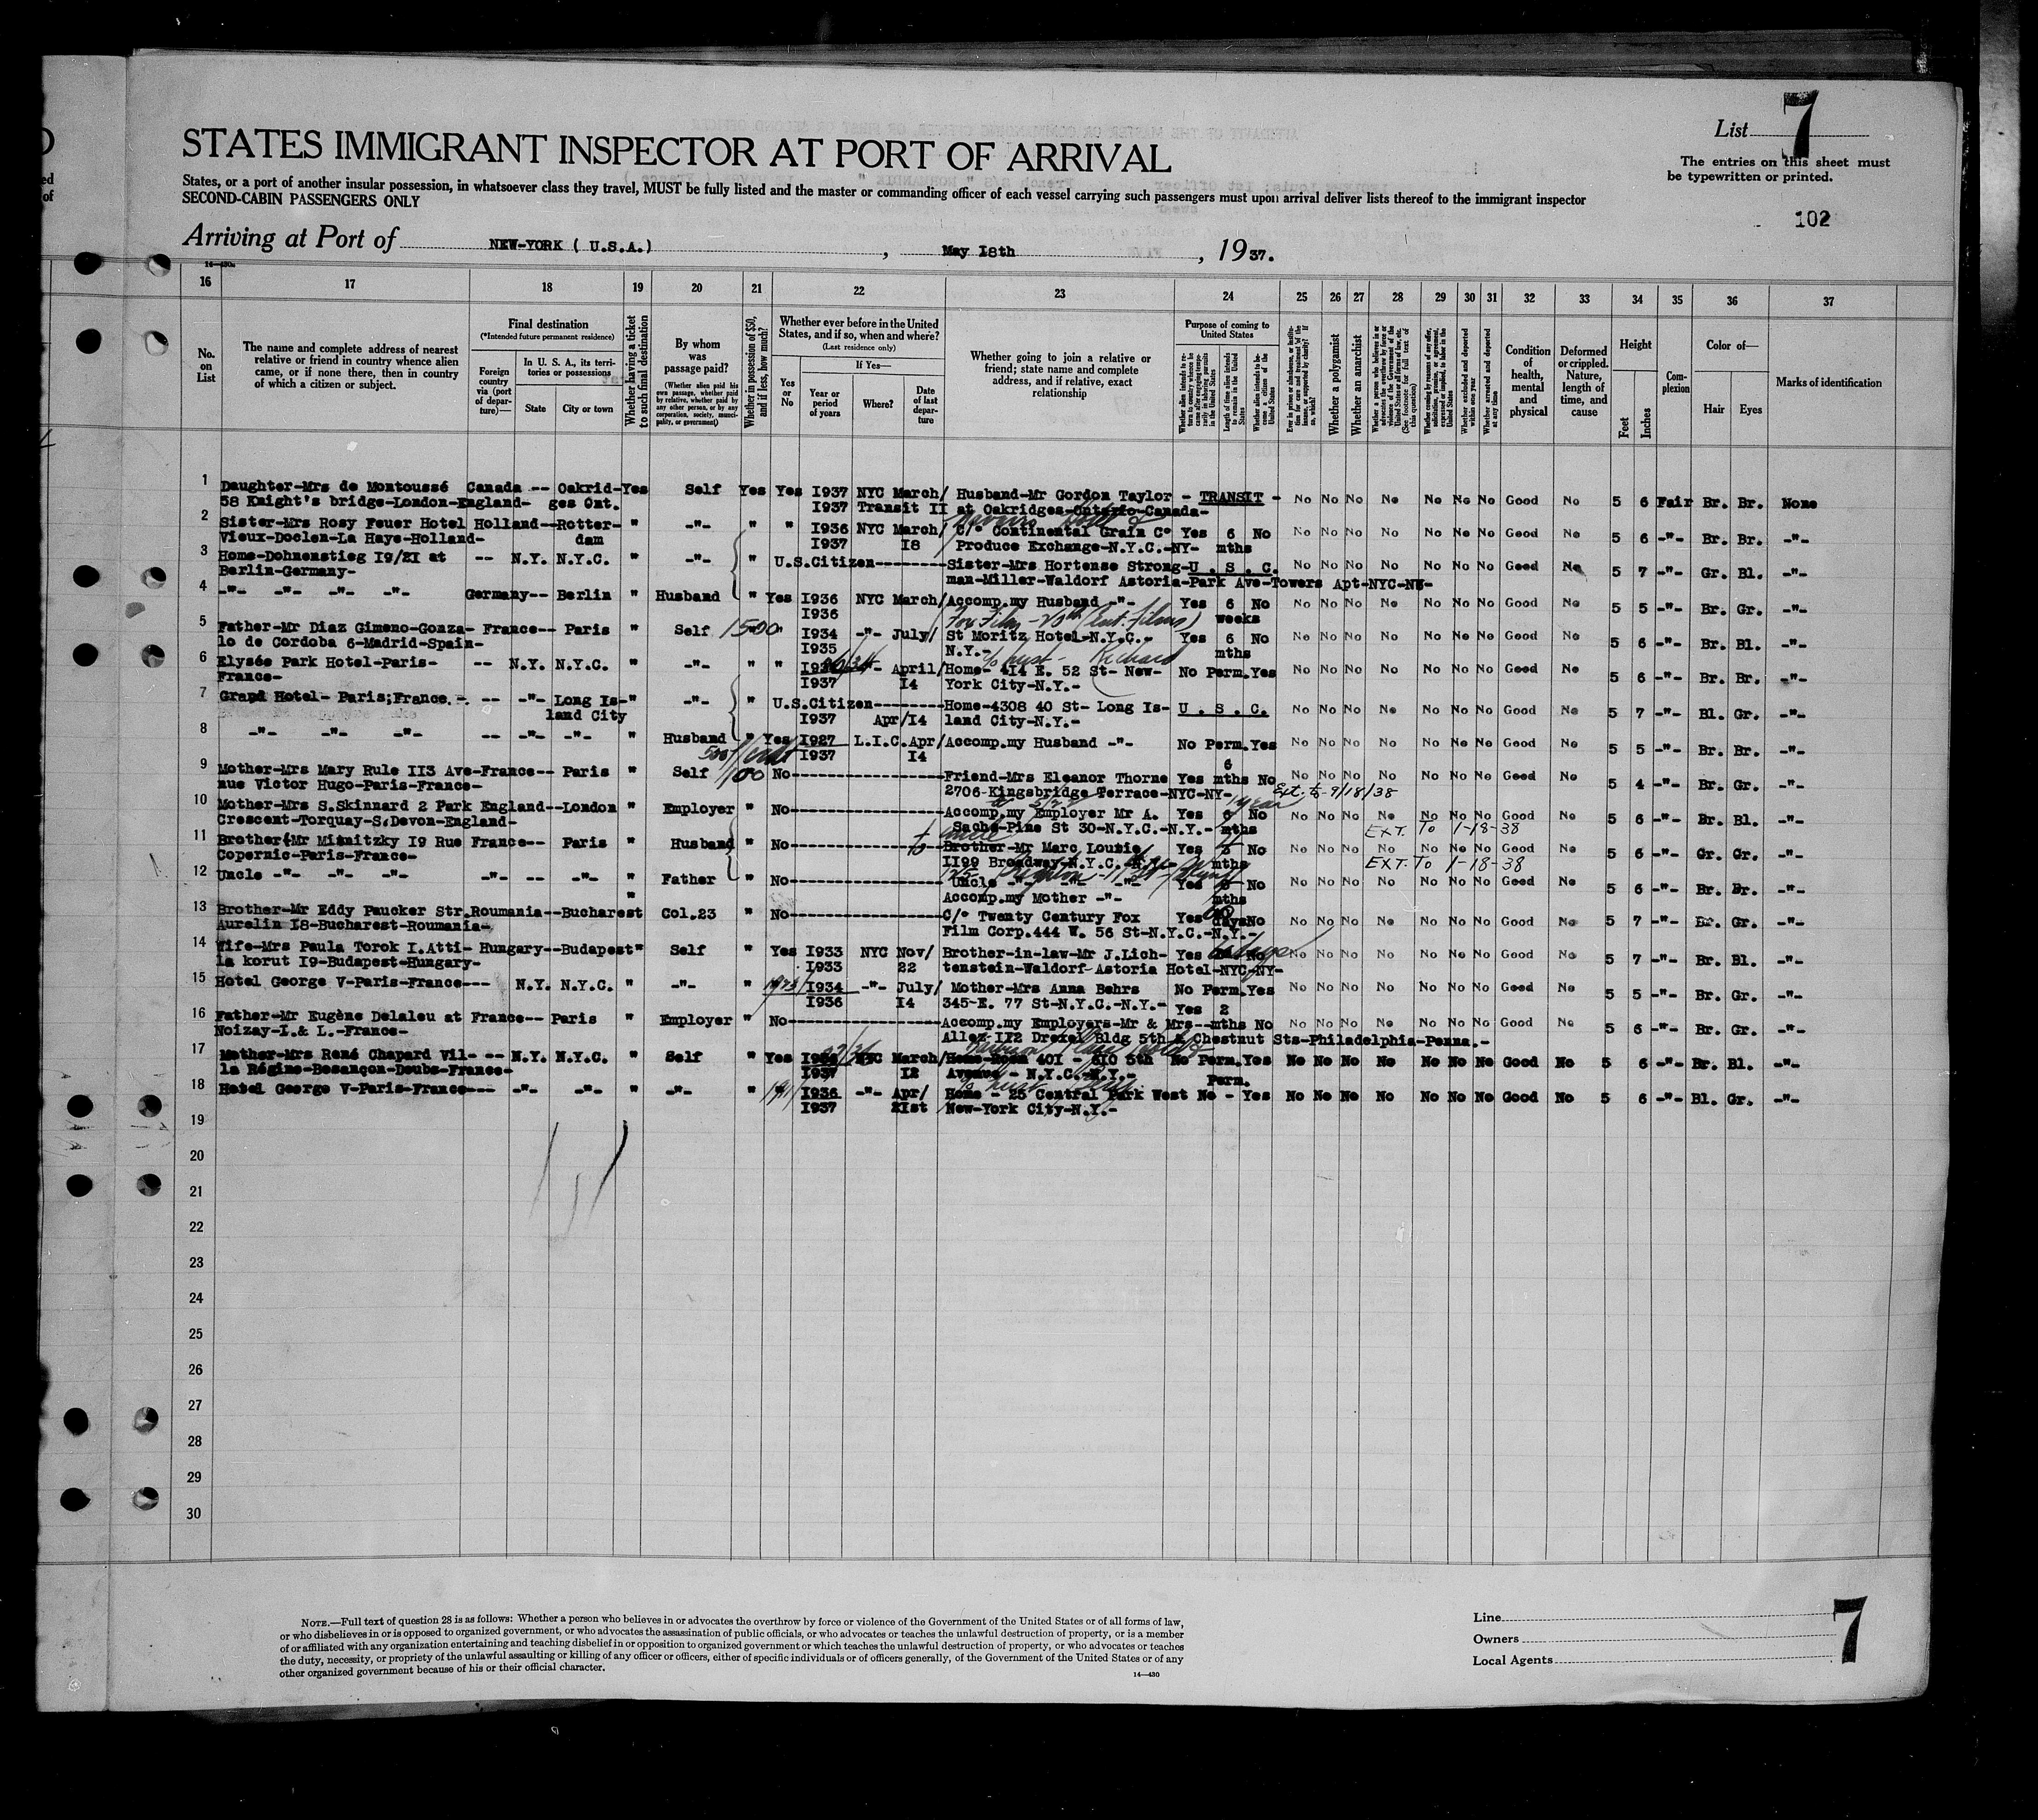 List 7
STATES IMMIGRANT INSPECTOR AT PORT OF ARRIVAL
The entries on this sheet must
be typewritten or printed.
States, or a port of another insular possession, in whatsoever class they travel, MUST be fully listed and the master or commanding officer of each vessel carrying such passengers must upon arrival deliver lists thereof to the immigrant inspector
SECOND-CABIN PASSENGERS ONLY
102
Arriving at Port of NEW-YORK ( U.S.A.) , May I8th , 1937.
16 17 18 19 20 21 22 23 24 25 26 27 28 29 30 31 32 33 34 35 36 37
No. on List
The name and complete address of nearest relative or friend in country whence alien came, or if none there, then in country of which a citizen or subject.
Final destination
(*Intended future permanent residence)
Foreign country via (port of departure)—
In U. S. A., its territories or possessions
State
City or town
Whether having a ticket to such final destination
By whom was passage paid?
(Whether alien paid his own passage, whether paid by relative, whether paid by any other person, or by any corporation, society, municipality, or government)
Whether in possession of $50, and if less, how much?
Whether ever before in the United States, and if so, when and where?
(Last residence only)
Yes or No
If Yes—
Year or period of years
Where?
Date of last departure
Whether going to join a relative or friend; state name and complete address, and if relative, exact relationship
Purpose of coming to United States
Whether a polygamist
Whether an anarchist
Condition of health, mental and physical
Deformed or crippled. Nature, length of time, and cause
Height
Feet
Inches
Complexion
Color of—
Hair
Eyes
Marks of identification
1 Daughter-Mrs de Montoussé Canada -- Oakrid- Yes Self Yes Yes I937 NYC March/ Husband-Mr Gordon Taylor - TRANSIT - No No No No No No No Good No 5 6 Fair Br. Br. None
58 Knight's bridge-London-England- ges Ont. I937 Transit II at Oakridges-Ontario-Canada-
2 Sister-Mrs Rosy Feuer Hotel Holland--Rotter- " -"- " " I936 NYC March/ C/° Continental Grain C° Yes 6 No No No No No No No No Good No 5 6 -"- Br. Br. -"-
Vieux-Doclen-La Haye-Holland- dam I937 I8 Produce Exchange-N.Y.C.-NY- mths
3 Home-Dohnenstieg I9/2I at -- N.Y. N.Y.C. " -"- " U.S.Citizen--------Sister-Mrs Hortense Strong-U . S . C. No No No No No No No Good No 5 7 -"- Gr. Bl. -"-
Berlin-Germany- man-Miller-Waldorf Astoria-Park Ave-Towers Apt-NYC-NY-
4 -"- -"- -"- -"- Germany-- Berlin " Husband " Yes I936 NYC March/ Accomp.my Husband -"- Yes 6 No No No No No No No No Good No 5 5 -"- Br. Gr. -"-
I936 weeks
5 Father-Mr Diaz Gimeno-Gonza- France-- Paris " Self 1500 I934 -"- July/ St Moritz Hotel-N.Y.C.- Yes 6 No No No No No No No No Good No 5 6 -"- Br. Bl. -"-
lo de Cordoba 6-Madrid-Spain- I935 N.Y.- mths
6 Elysée Park Hotel-Paris- -- N.Y. N.Y.C. " -"- " " -"- April/ Home- 4I4 E. 52 St- New- No Perm.Yes No No No No No No No Good No 5 6 -"- Br. Br. -"-
France- I937 I4 York City-N.Y.-
7 Grand Hotel- Paris;France.- -- -"- Long Is- " -"- " U.S.Citizen--------Home-4308 40 St- Long Is- U . S . C. No No No No No No No Good No 5 7 -"- Bl. Gr. -"-
land City I937 Apr/I4 land City-N.Y.-
8 -"- -"- -"- -- -"- -"- " Husband " Yes I927 L.I.C.Apr/ Accomp.my Husband -"- No Perm.Yes No No No No No No No Good No 5 5 -"- Br. Br. -"-
I937 I4
9 Mother-Mrs Mary Rule II3 Ave-France-- Paris " Self 100 No------------------Friend-Mrs Eleanor Thorne Yes 6 mths No No No No No No No No Good No 5 4 -"- Br. Gr. -"-
nue Victor Hugo-Paris-France- 2706-Kingsbridge Terrace-NYC-NY- Ext. to 9/18/38
10 Mother-Mrs S.Skinnard 2 Park England--London " Employer " No------------------Accomp.my Employer Mr A. Yes 6 No No No No No No No No Good No 5 6 -"- Br. Bl. -"-
Crescent-Torquay-S.Devon-England- Sachs-Pine St 30-N.Y.C.-N.Y.- mths EXT. To 1-18-38
11 Brother-Mr Misnitzky I9 Rue France-- Paris " Husband " No------------------Brother-Mr Marc Louzie Yes No No No No No No No No Good No 5 6 -"- Gr. Gr. -"-
Copernic-Paris-France- II99 Broadway-N.Y.C.-N.Y.- mths EXT. To 1-18-38
12 Uncle -"- -"- -"- -- -- -"- " Father " No------------------Uncle -"- -"- -"- Yes No No No No No No No No Good No 5 6 -"- Br. Br. -"-
Accomp.my Mother -"- mths
13 Brother-Mr Eddy Paucker Str.Roumania--Bucharest " Col.23 " No------------------C/° Twenty Century Fox Yes 60 days No No No No No No No No Good No 5 7 -"- Br. Gr. -"-
Aurelin I8-Bucharest-Roumania- Film Corp.444 W. 56 St-N.Y.C.-N.Y.-
14 Wife-Mrs Paula Torok I.Atti- Hungary--Budapest " Self " Yes I933 NYC Nov/ Brother-in-law-Mr J.Lich- Yes No No No No No No No No Good No 5 7 -"- Br. Bl. -"-
la korut I9-Budapest-Hungary- I933 22 tenstein-Waldorf-Astoria Hotel-NYC-NY-
15 Hotel George V-Paris-France--- N.Y. N.Y.C. " -"- " 1923/ I934 -"- July/ Mother-Mrs Anna Behrs No Perm.Yes No No No No No No No Good No 5 5 -"- Br. Gr. -"-
I936 I4 345-E. 77 St-N.Y.C.-N.Y.-
16 Father-Mr Eugène Delaleu at France-- Paris " Employer " No------------------Accomp.my Employers-Mr & Mrs-- Yes 2 mths No No No No No No No No Good No 5 6 -"- Br. Gr. -"-
Noizay-I.& L.-France- Allez-II2 Drexel Bldg 5th & Chestnut Sts-Philadelphia-Penna.-
17 Mother-Mrs René Chapard Vil- -- N.Y. N.Y.C. " Self " Yes NYC March/ Home-Room 40I - 6I0 5th No Perm.Yes No No No No No No No Good No 5 6 -"- Br. Bl. -"-
la Régine-Besançon-Doubs-France- I937 I2 Avenue - N.Y.C.-N.Y.-
18 Hotel George V-Paris-France--- -"- -"- " -"- " 1911/ I936 -"- Apr/ Home - 25 Central Park West No Perm. - Yes No No No No No No No Good No 5 6 -"- Bl. Gr. -"-
I937 2Ist New-York City-N.Y.-
19
20
21
22
23
24
25
26
27
28
29
30
NOTE.—Full text of question 28 is as follows: Whether a person who believes in or advocates the overthrow by force or violence of the Government of the United States or of all forms of law,
or who disbelieves in or is opposed to organized government, or who advocates the assassination of public officials, or who advocates or teaches the unlawful destruction of property, or is a member
of or affiliated with any organization entertaining and teaching disbelief in or opposition to organized government or which teaches the unlawful destruction of property, or who advocates or teaches
the duty, necessity, or propriety of the unlawful assaulting or killing of any officer or officers, either of specific individuals or of officers generally, of the Government of the United States or of any
other organized government because of his or their official character.
14—430
Line
Owners
Local Agents
7